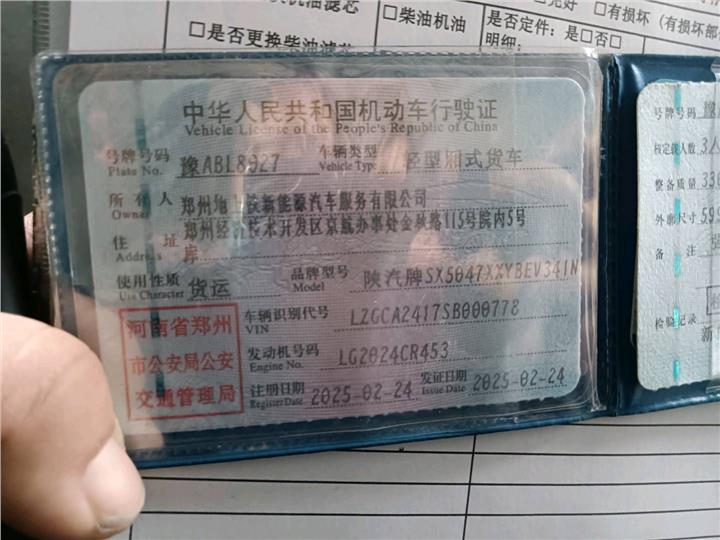 □是否更换柴油滤芯
□柴油机油
是否定件：是□否□
明细：
□有损坏（有损坏部
中华人民共和国机动车行驶证
Vehicle License of the People's Republic of China
号牌号码 豫ABL8927 车辆类型 轻型厢式货车
Plate No. Vehicle Type
所有人 郑州地上铁新能源汽车服务有限公司
Owner
住址 郑州经济技术开发区京航办事处金敦路115号院内5号库
Address
使用性质 货运 品牌型号 陕汽牌SX5047XXYBEV341N
Use Character Model
河南省郑州市公安局公安交通管理局
车辆识别代号 LZGCA2417SB000778
VIN
发动机号码 LG2024CR453
Engine No.
注册日期 2025-02-24 发证日期 2025-02-24
Register Date Issue Date
号牌号码 豫
核定载人数 3人
整备质量 330
外廓尺寸 59
备注
检验记录
新